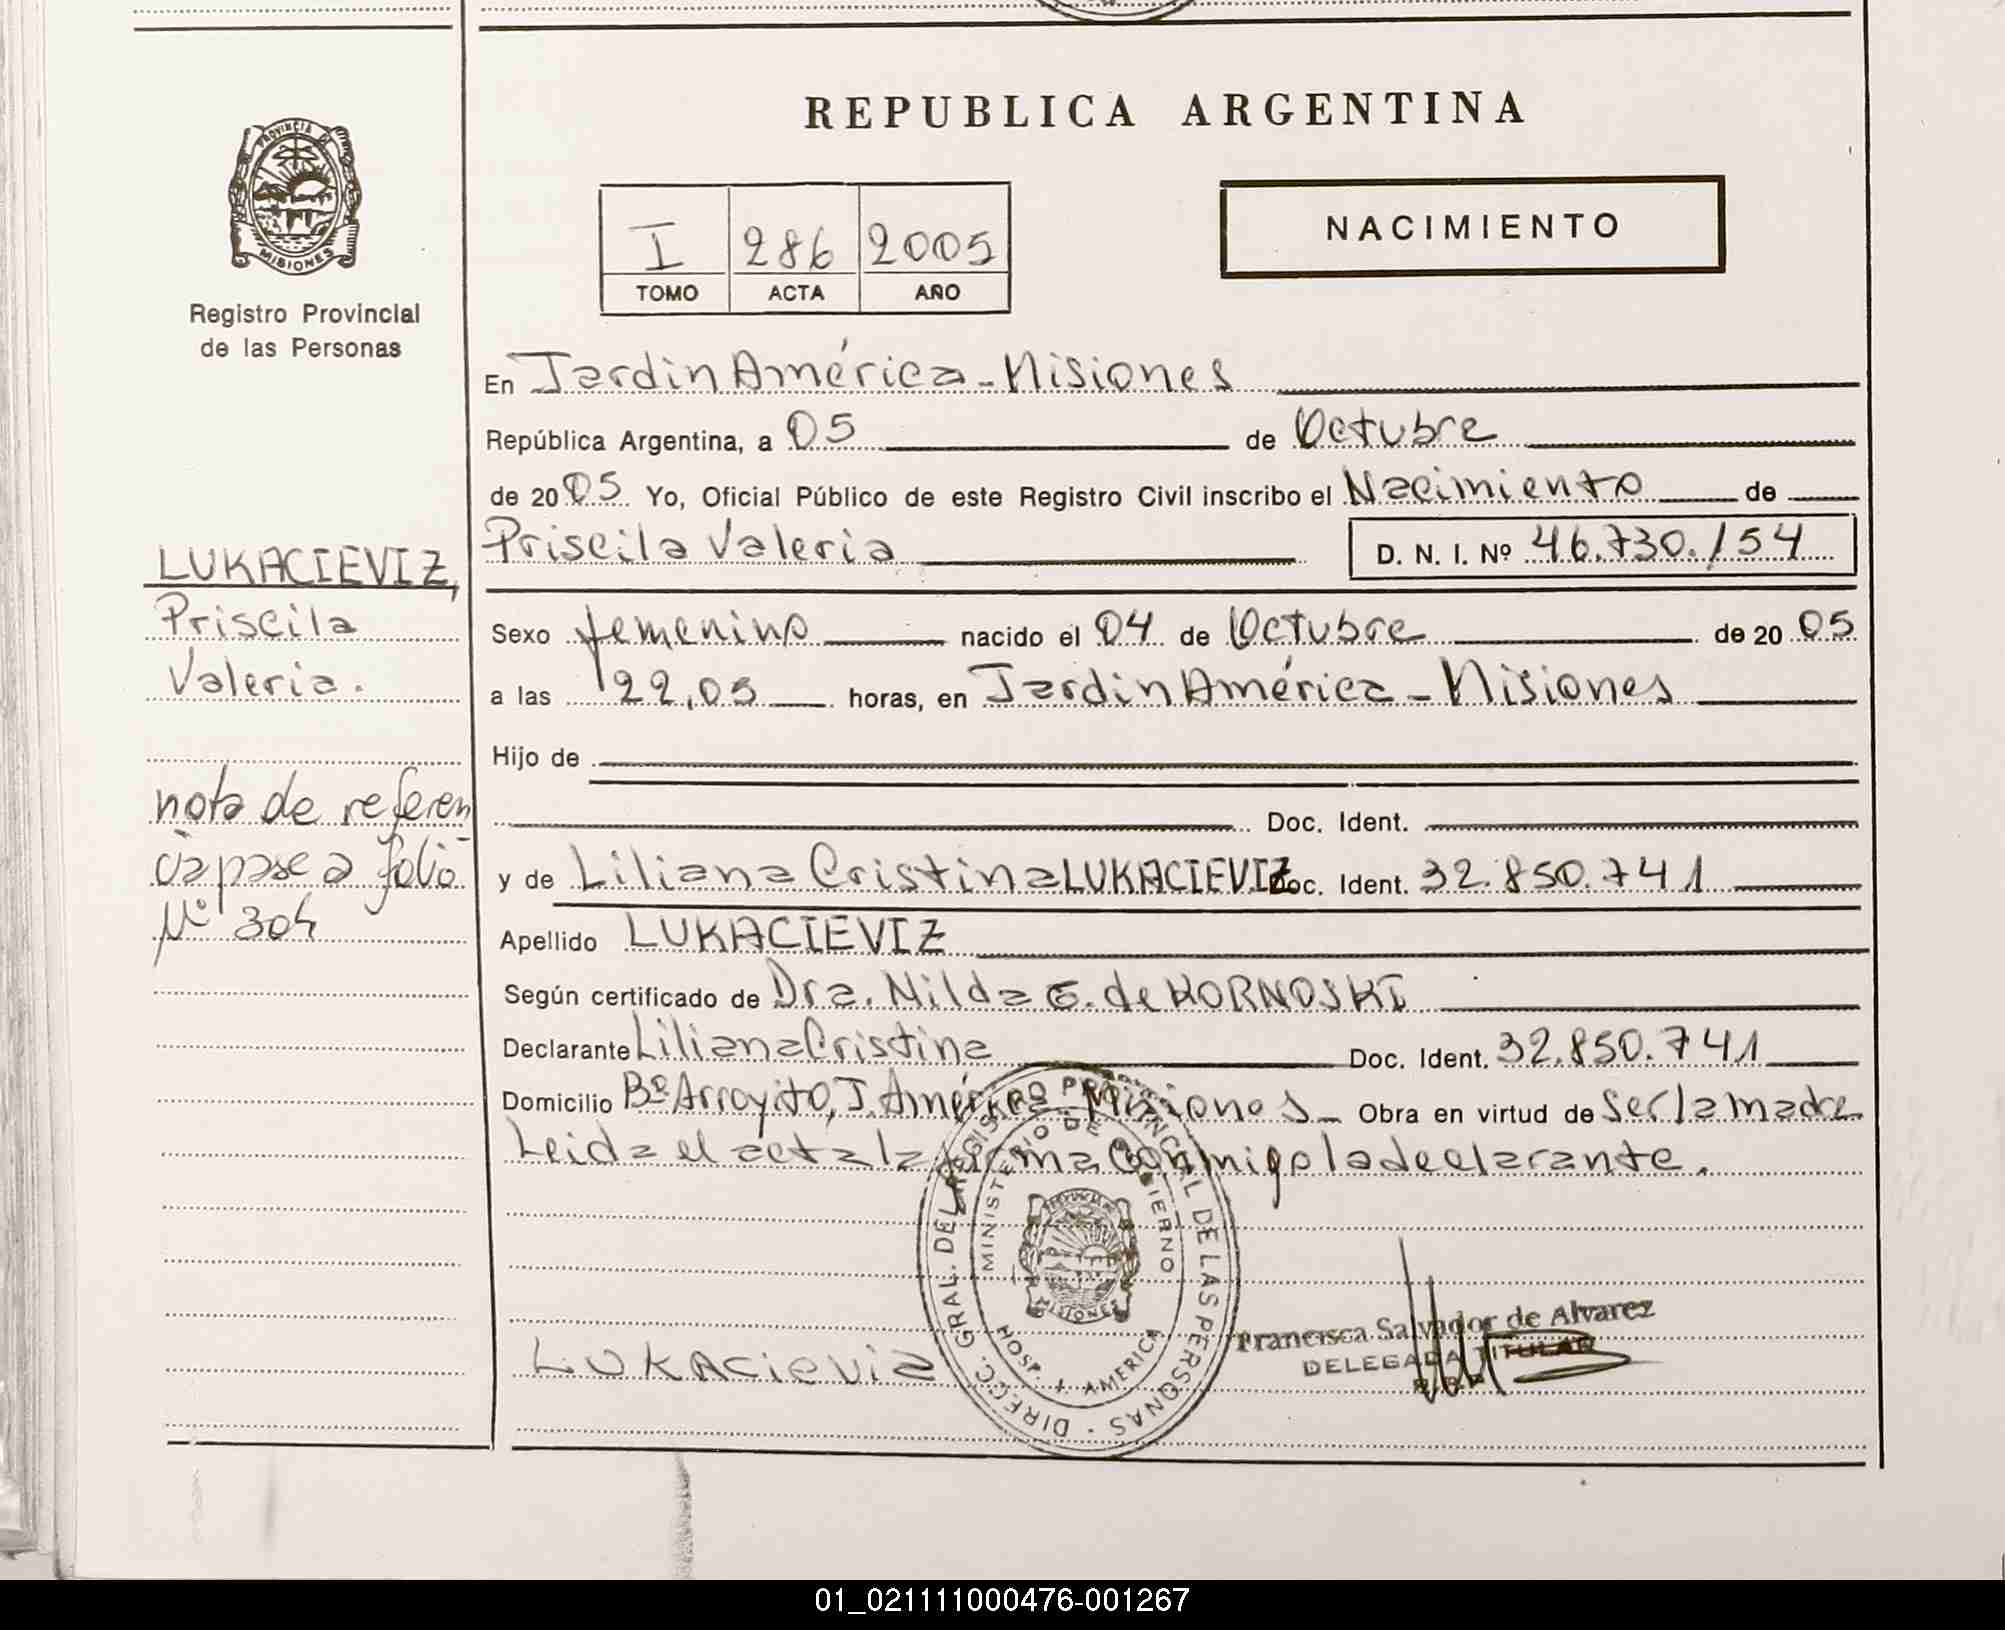 REPUBLICA ARGENTINA
PROVINCIA DE
MISIONES
Registro Provincial
de las Personas
I 286 2005
TOMO ACTA AÑO
NACIMIENTO
En Jardin América - Misiones
República Argentina, a 05 de Octubre
de 2005 Yo, Oficial Público de este Registro Civil inscribo el Nacimiento de
Priscila Valeria D. N. I. Nº 46.730.154
LUKACIEVIZ,
Priscila
Valeria.
Sexo femenino nacido el 04 de Octubre de 2005
a las 22,05 horas, en Jardin América - Misiones
Hijo de
Doc. Ident.
nota de referen
cia pase a folio
Nº 304
y de Liliana Cristina LUKACIEVIZ Doc. Ident. 32.850.741
Apellido LUKACIEVIZ
Según certificado de Dra. Nilda G. de KORNOSKI
Declarante Liliana Cristina Doc. Ident. 32.850.741
Domicilio Bº Arroyito, J. América - Misiones - Obra en virtud de ser la madre
Leida el acta la firma conmigo la declarante.
DIRECC. GRAL. DEL REGISTRO PROVINCIAL DE LAS PERSONAS
MINISTERIO DE GOBIERNO
MISIONES
HOSP. J. AMERICA
LUKACieviz
Francisca Salvador de Alvarez
DELEGADA TITULAR
01_021111000476-001267